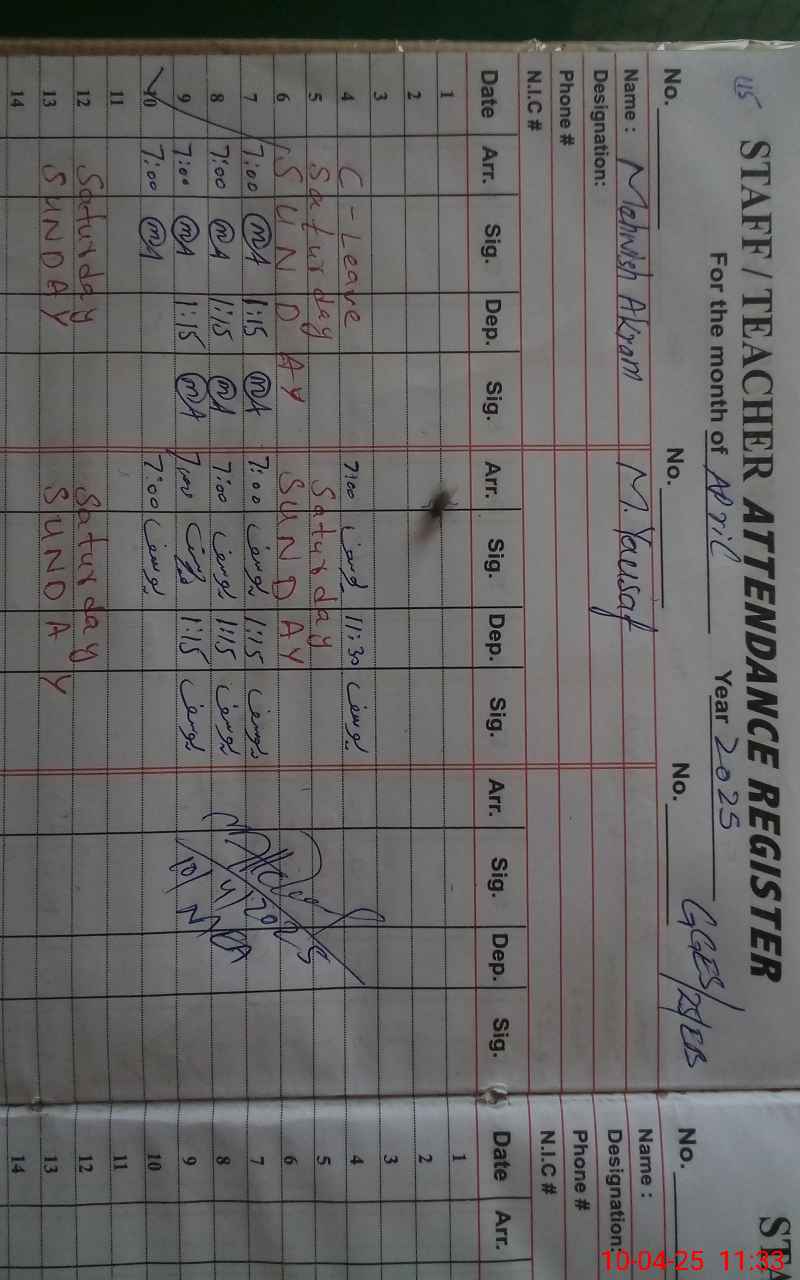 115
STAFF / TEACHER ATTENDANCE REGISTER
For the month of April Year 2025
GGES/25/EB
No. No. No.
Name : Mehwish Akram M. Yousaf
Designation:
Phone #
N.I.C #
Date Arr. Sig. Dep. Sig. Arr. Sig. Dep. Sig. Arr. Sig. Dep. Sig.
1
2
3
4 C-Leave 7:00 یوسف 11:30 یوسف
5 Saturday Saturday
6 SUNDAY SUNDAY
7 7:00 MA 1:15 MA 7:00 یوسف 1:15 یوسف
8 7:00 MA 1:15 MA 7:00 یوسف 1:15 یوسف
9 7:00 MA 1:15 MA 7:00 یوسف 1:15 یوسف
10 7:00 MA 7:00 یوسف
11
12 Saturday Saturday
13 SUNDAY SUNDAY
14
10/4/2025
STA
No.
Name :
Designation:
Phone #
N.I.C #
Date Arr.
1
2
3
4
5
6
7
8
9
10
11
12
13
14
10-04-25 11:33